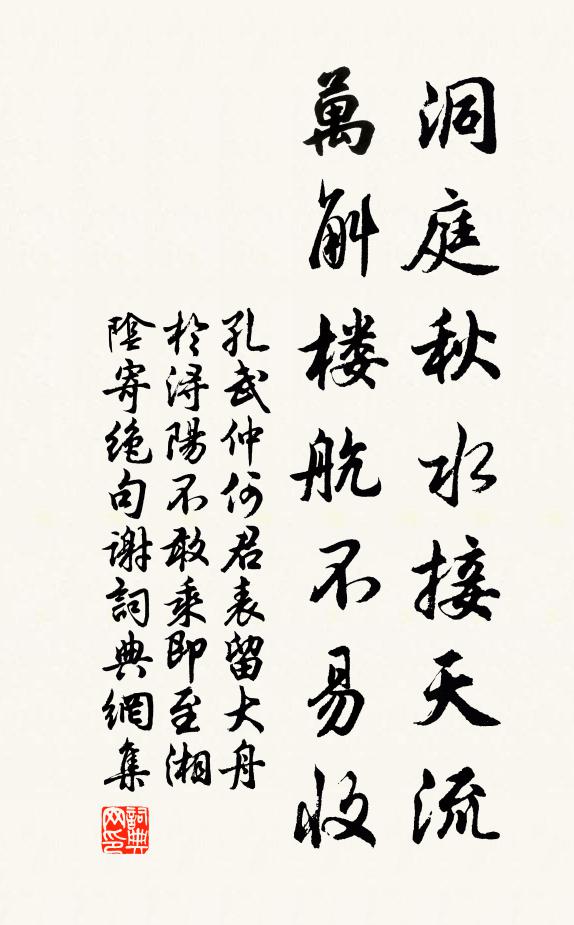 洞庭秋水接天流
萬斛楼航不易收
孔武仲何君表留大舟
於浔陽不敢乘即至湘
陰寄绝句谢詞典網集
詞典
网印